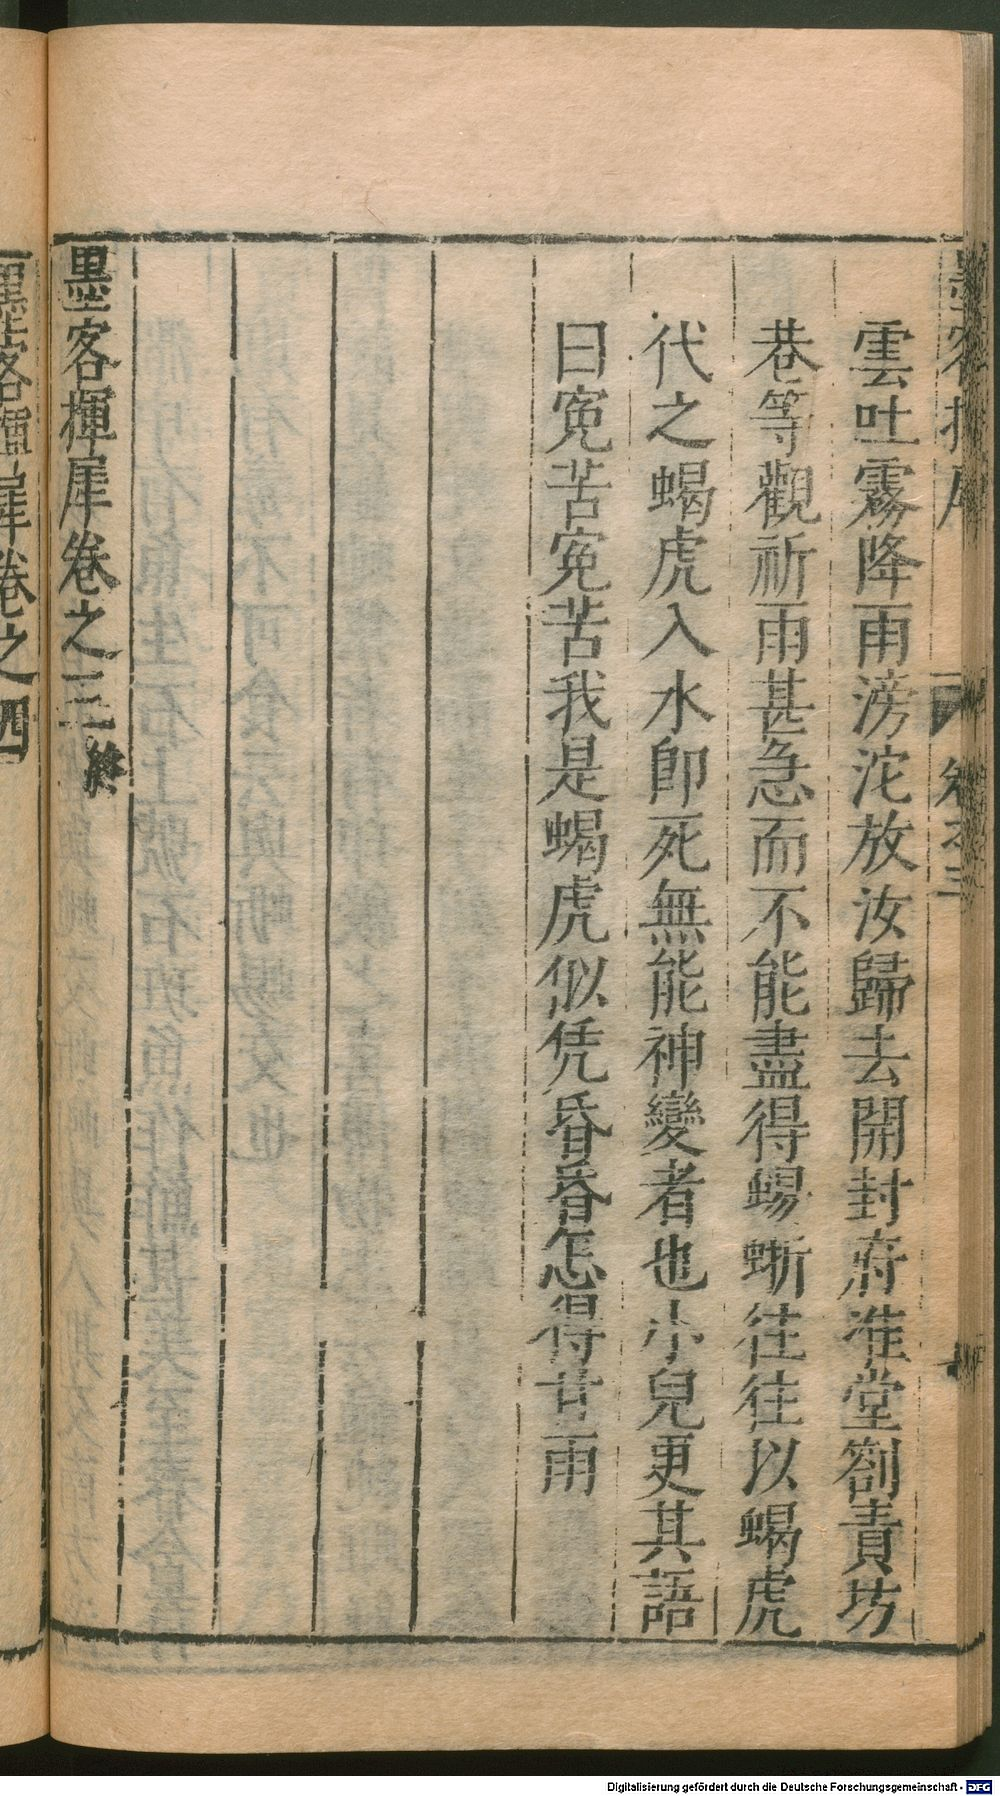 雲吐霧降雨滂沱放汝歸去開封府准堂劄責坊
巷等觀祈雨甚急而不能盡得蜴蜥往往以蝎虎
代之蝎虎入水即死無能神變者也小兒更其語
曰寃苦寃苦我是蝎虎似凭昏昏怎得甘雨
墨客揮犀卷之三終
墨客揮犀卷之四
Digitalisierung gefördert durch die Deutsche Forschungsgemeinschaft - DFG